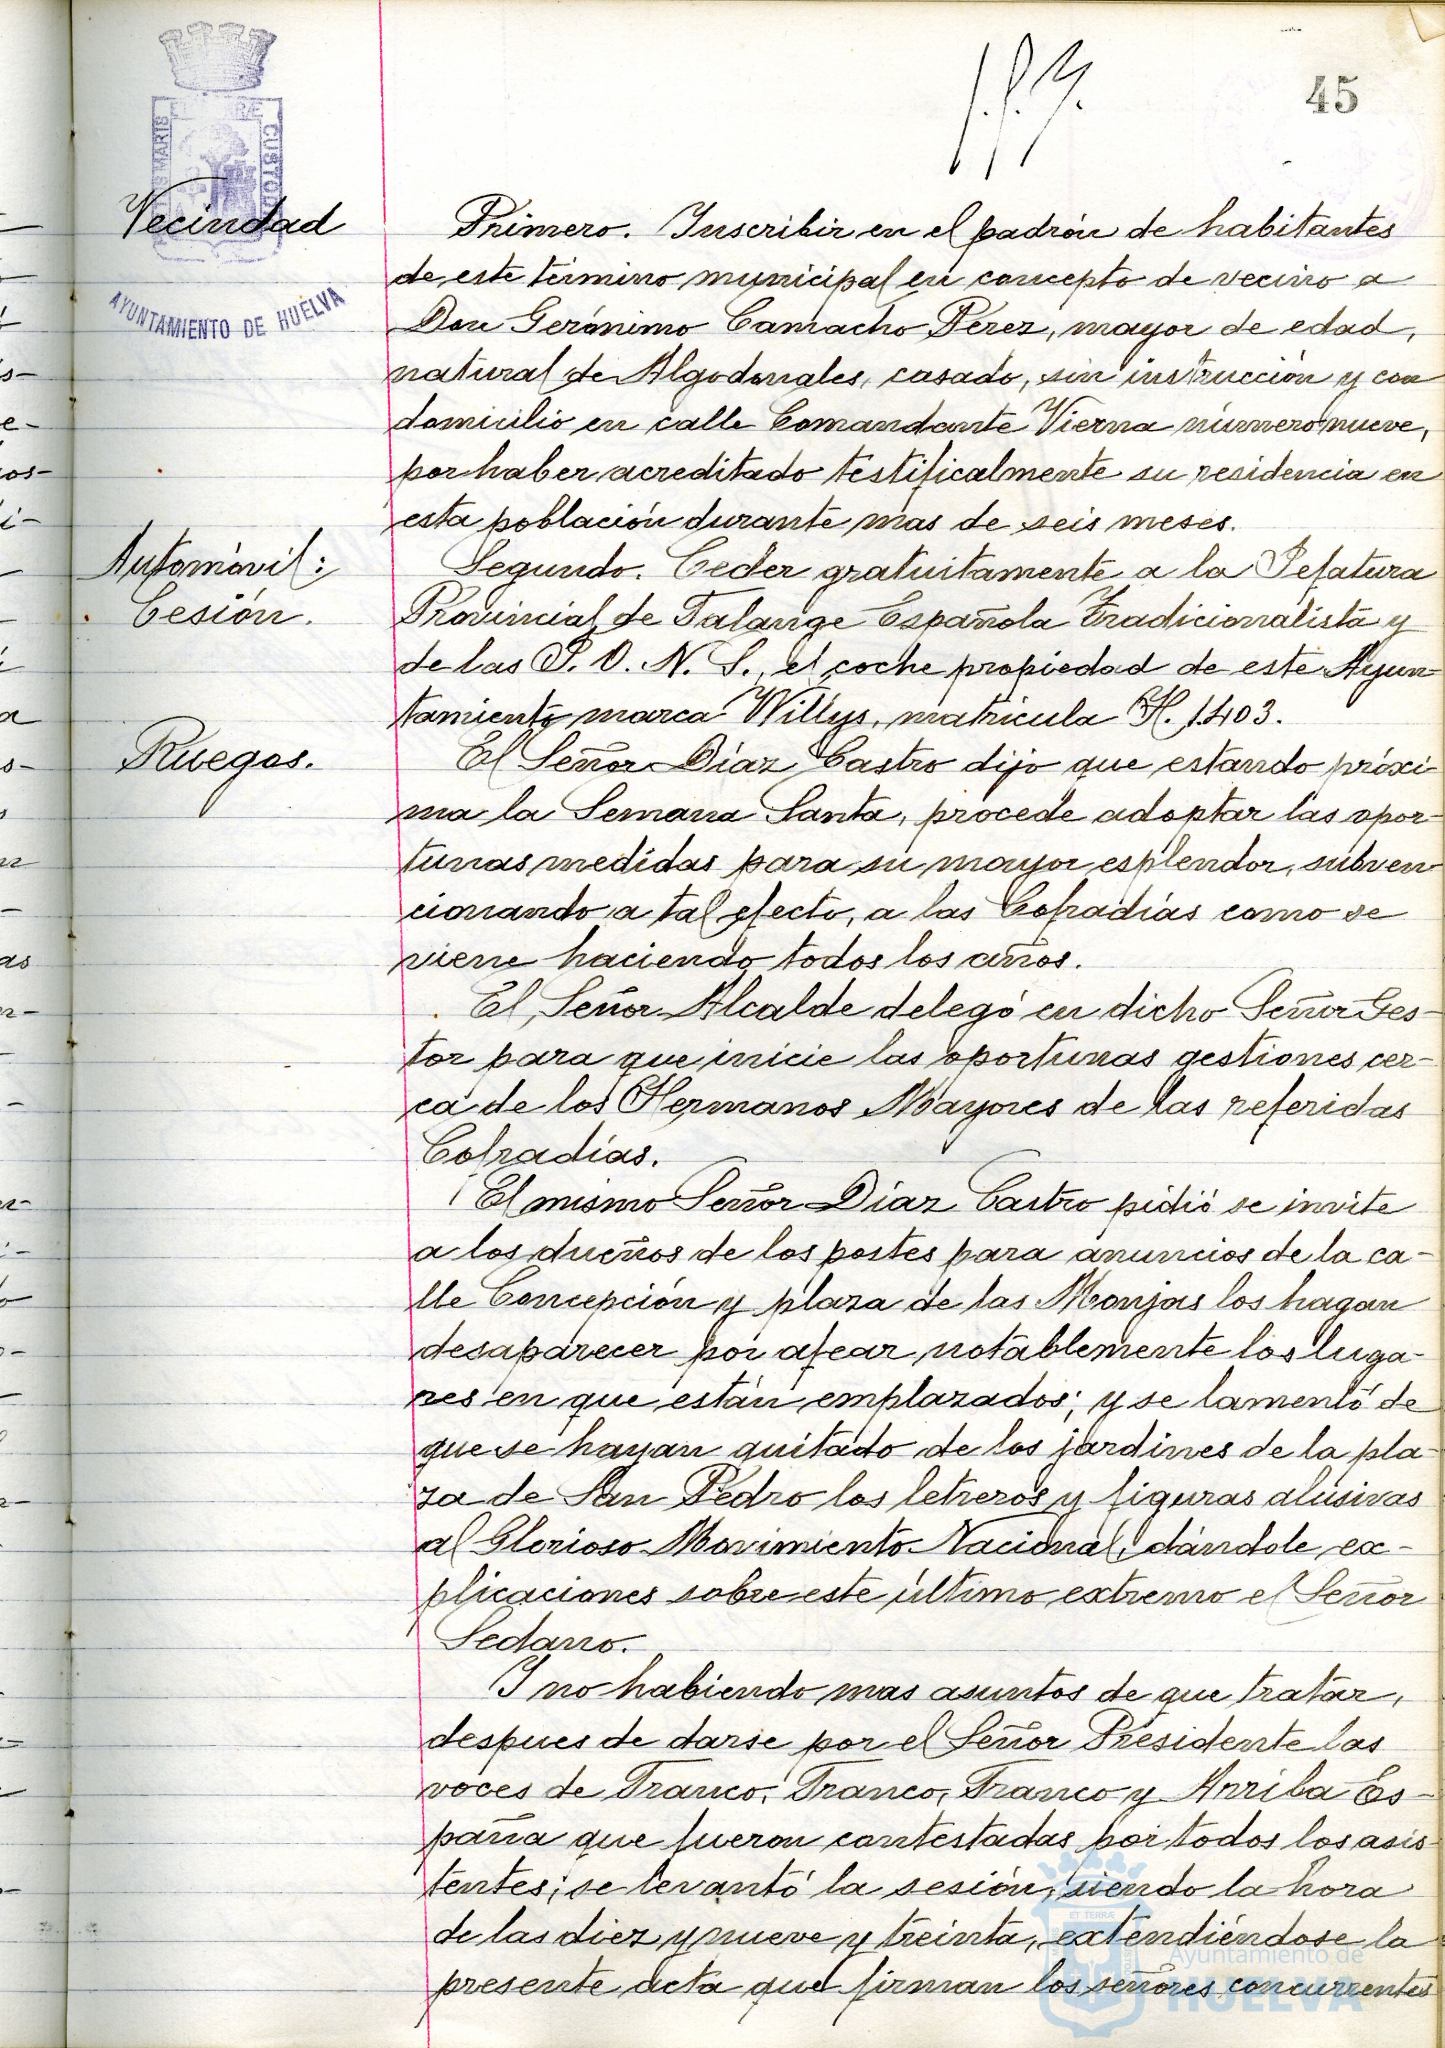 45
Vecindad
AYUNTAMIENTO DE HUELVA
Primero. Inscribir en el padrón de habitantes
de este término municipal en concepto de vecino a
Don Gerónimo Camacho Pérez, mayor de edad,
natural de Algodonales, casado, sin instrucción y con
domicilio en calle Comandante Vierna número nueve,
por haber acreditado testificalmente su residencia en
esta población durante mas de seis meses.
Automóvil:
Cesión.
Segundo. Ceder gratuitamente a la Jefatura
Provincial de Falange Española Tradicionalista y
de las J. O. N. S., el coche propiedad de este Ayun-
tamiento marca Willys, matrícula H. 1.403.
Ruegos.
El Señor Díaz Castro dijo que estando próxi
ma la Semana Santa, procede adoptar las opor-
tunas medidas para su mayor esplendor, subven
cionando a tal efecto, a las Cofradías como se
viene haciendo todos los años.
El Señor Alcalde delegó en dicho Señor Ges-
tor para que inicie las oportunas gestiones cer-
ca de los Hermanos Mayores de las referidas
Cofradías.
El mismo Señor Díaz Castro pidió se invite
a los dueños de los postes para anuncios de la ca-
lle Concepción y plaza de las Monjas los hagan
desaparecer por afear notablemente los luga-
res en que están emplazados; y se lamentó de
que se hayan quitado de los jardines de la pla-
za de San Pedro los letreros y figuras alusivas
al Glorioso Movimiento Nacional, dándole ex-
plicaciones sobre este último extremo el Señor
Sedano.
Y no habiendo mas asuntos de que tratar,
despues de darse por el Señor Presidente las
voces de Franco, Franco, Franco y Arriba Es-
paña que fueron contestadas por todos los asis
tentes; se levantó la sesión, siendo la hora
de las diez y nueve y treinta, extendiéndose la
presente acta que firman los señores concurrentes
Ayuntamiento de
HUELVA